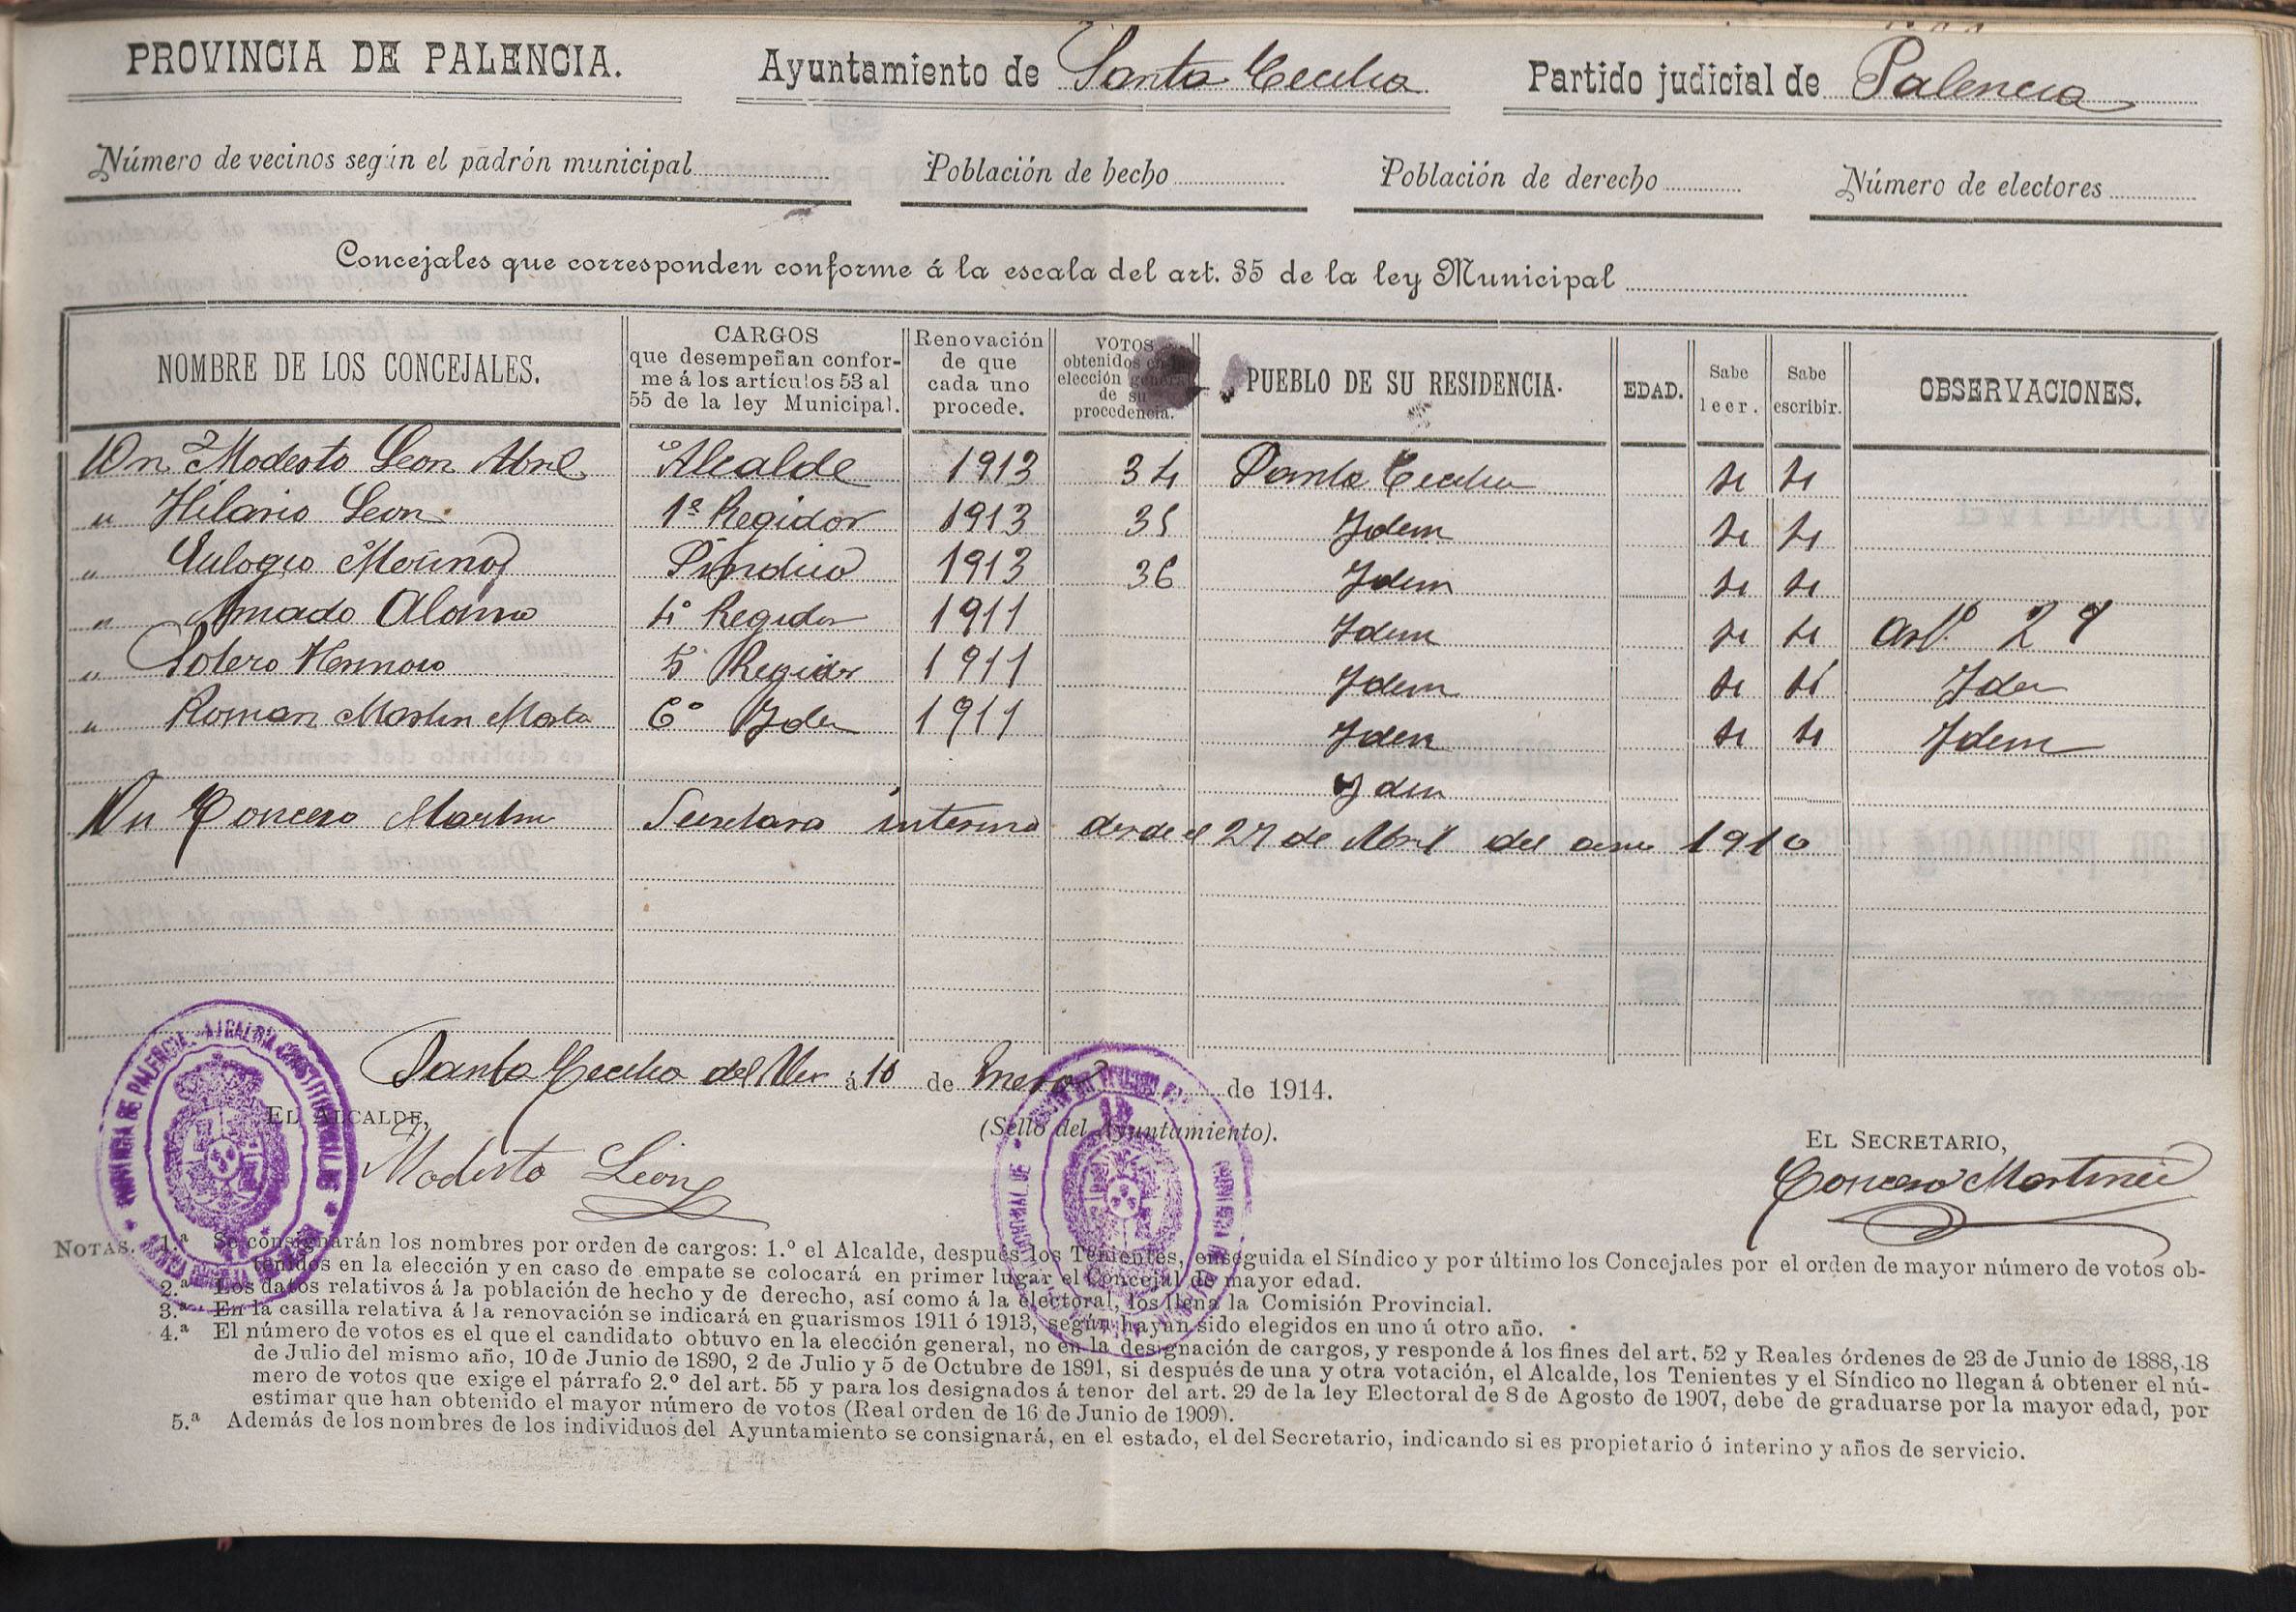 PROVINCIA DE PALENCIA. Ayuntamiento de Santa Cecilia Partido judicial de Palencia
Número de vecinos según el padrón municipal Población de hecho Población de derecho Número de electores
Concejales que corresponden conforme á la escala del art. 35 de la ley Municipal
NOMBRE DE LOS CONCEJALES. CARGOS que desempeñan confor- me á los artículos 53 al 55 de la ley Municipal. Renovación de que cada uno procede. VOTOS obtenidos en la elección general de su procedencia. PUEBLO DE SU RESIDENCIA. EDAD. Sabe leer. Sabe escribir. OBSERVACIONES.
Dn Modesto Leon Abril Alcalde 1913 34 Santa Cecilia si si
" Hilario Leon 1º Regidor 1913 35 Idem si si
" Eulogio Merino Sindico 1913 36 Idem si si
" Amado Alonso 4º Regidor 1911 Idem si si Artº 29
" Sotero Hermoso 5º Regidor 1911 Idem si sí Idem
" Roman Martin 6º Idem 1911 Idem si si Idem
Idem
Dn Martin Secretario interino desde el 27 de Abril del año 1910
Santa Cecilia del Alcor á 10 de Enero de 1914.
EL ALCALDE,
(Sello del Ayuntamiento).
EL SECRETARIO,
Modesto Leon
Martinez
NOTAS. 1.ª Se consignarán los nombres por orden de cargos: 1.º el Alcalde, después los Tenientes, enseguida el Síndico y por último los Concejales por el orden de mayor número de votos ob-
tenidos en la elección y en caso de empate se colocará en primer lugar el Concejal de mayor edad.
2.ª Los datos relativos á la población de hecho y de derecho, así como á la electoral, los llena la Comisión Provincial.
3.ª En la casilla relativa á la renovación se indicará en guarismos 1911 ó 1913, según hayan sido elegidos en uno ú otro año.
4.ª El número de votos es el que el candidato obtuvo en la elección general, no en la designación de cargos, y responde á los fines del art. 52 y Reales órdenes de 23 de Junio de 1888, 18
de Julio del mismo año, 10 de Junio de 1890, 2 de Julio y 5 de Octubre de 1891, si después de una y otra votación, el Alcalde, los Tenientes y el Síndico no llegan á obtener el nú-
mero de votos que exige el párrafo 2.º del art. 55 y para los designados á tenor del art. 29 de la ley Electoral de 8 de Agosto de 1907, debe de graduarse por la mayor edad, por
estimar que han obtenido el mayor número de votos (Real orden de 16 de Junio de 1909).
5.ª Además de los nombres de los individuos del Ayuntamiento se consignará, en el estado, el del Secretario, indicando si es propietario ó interino y años de servicio.